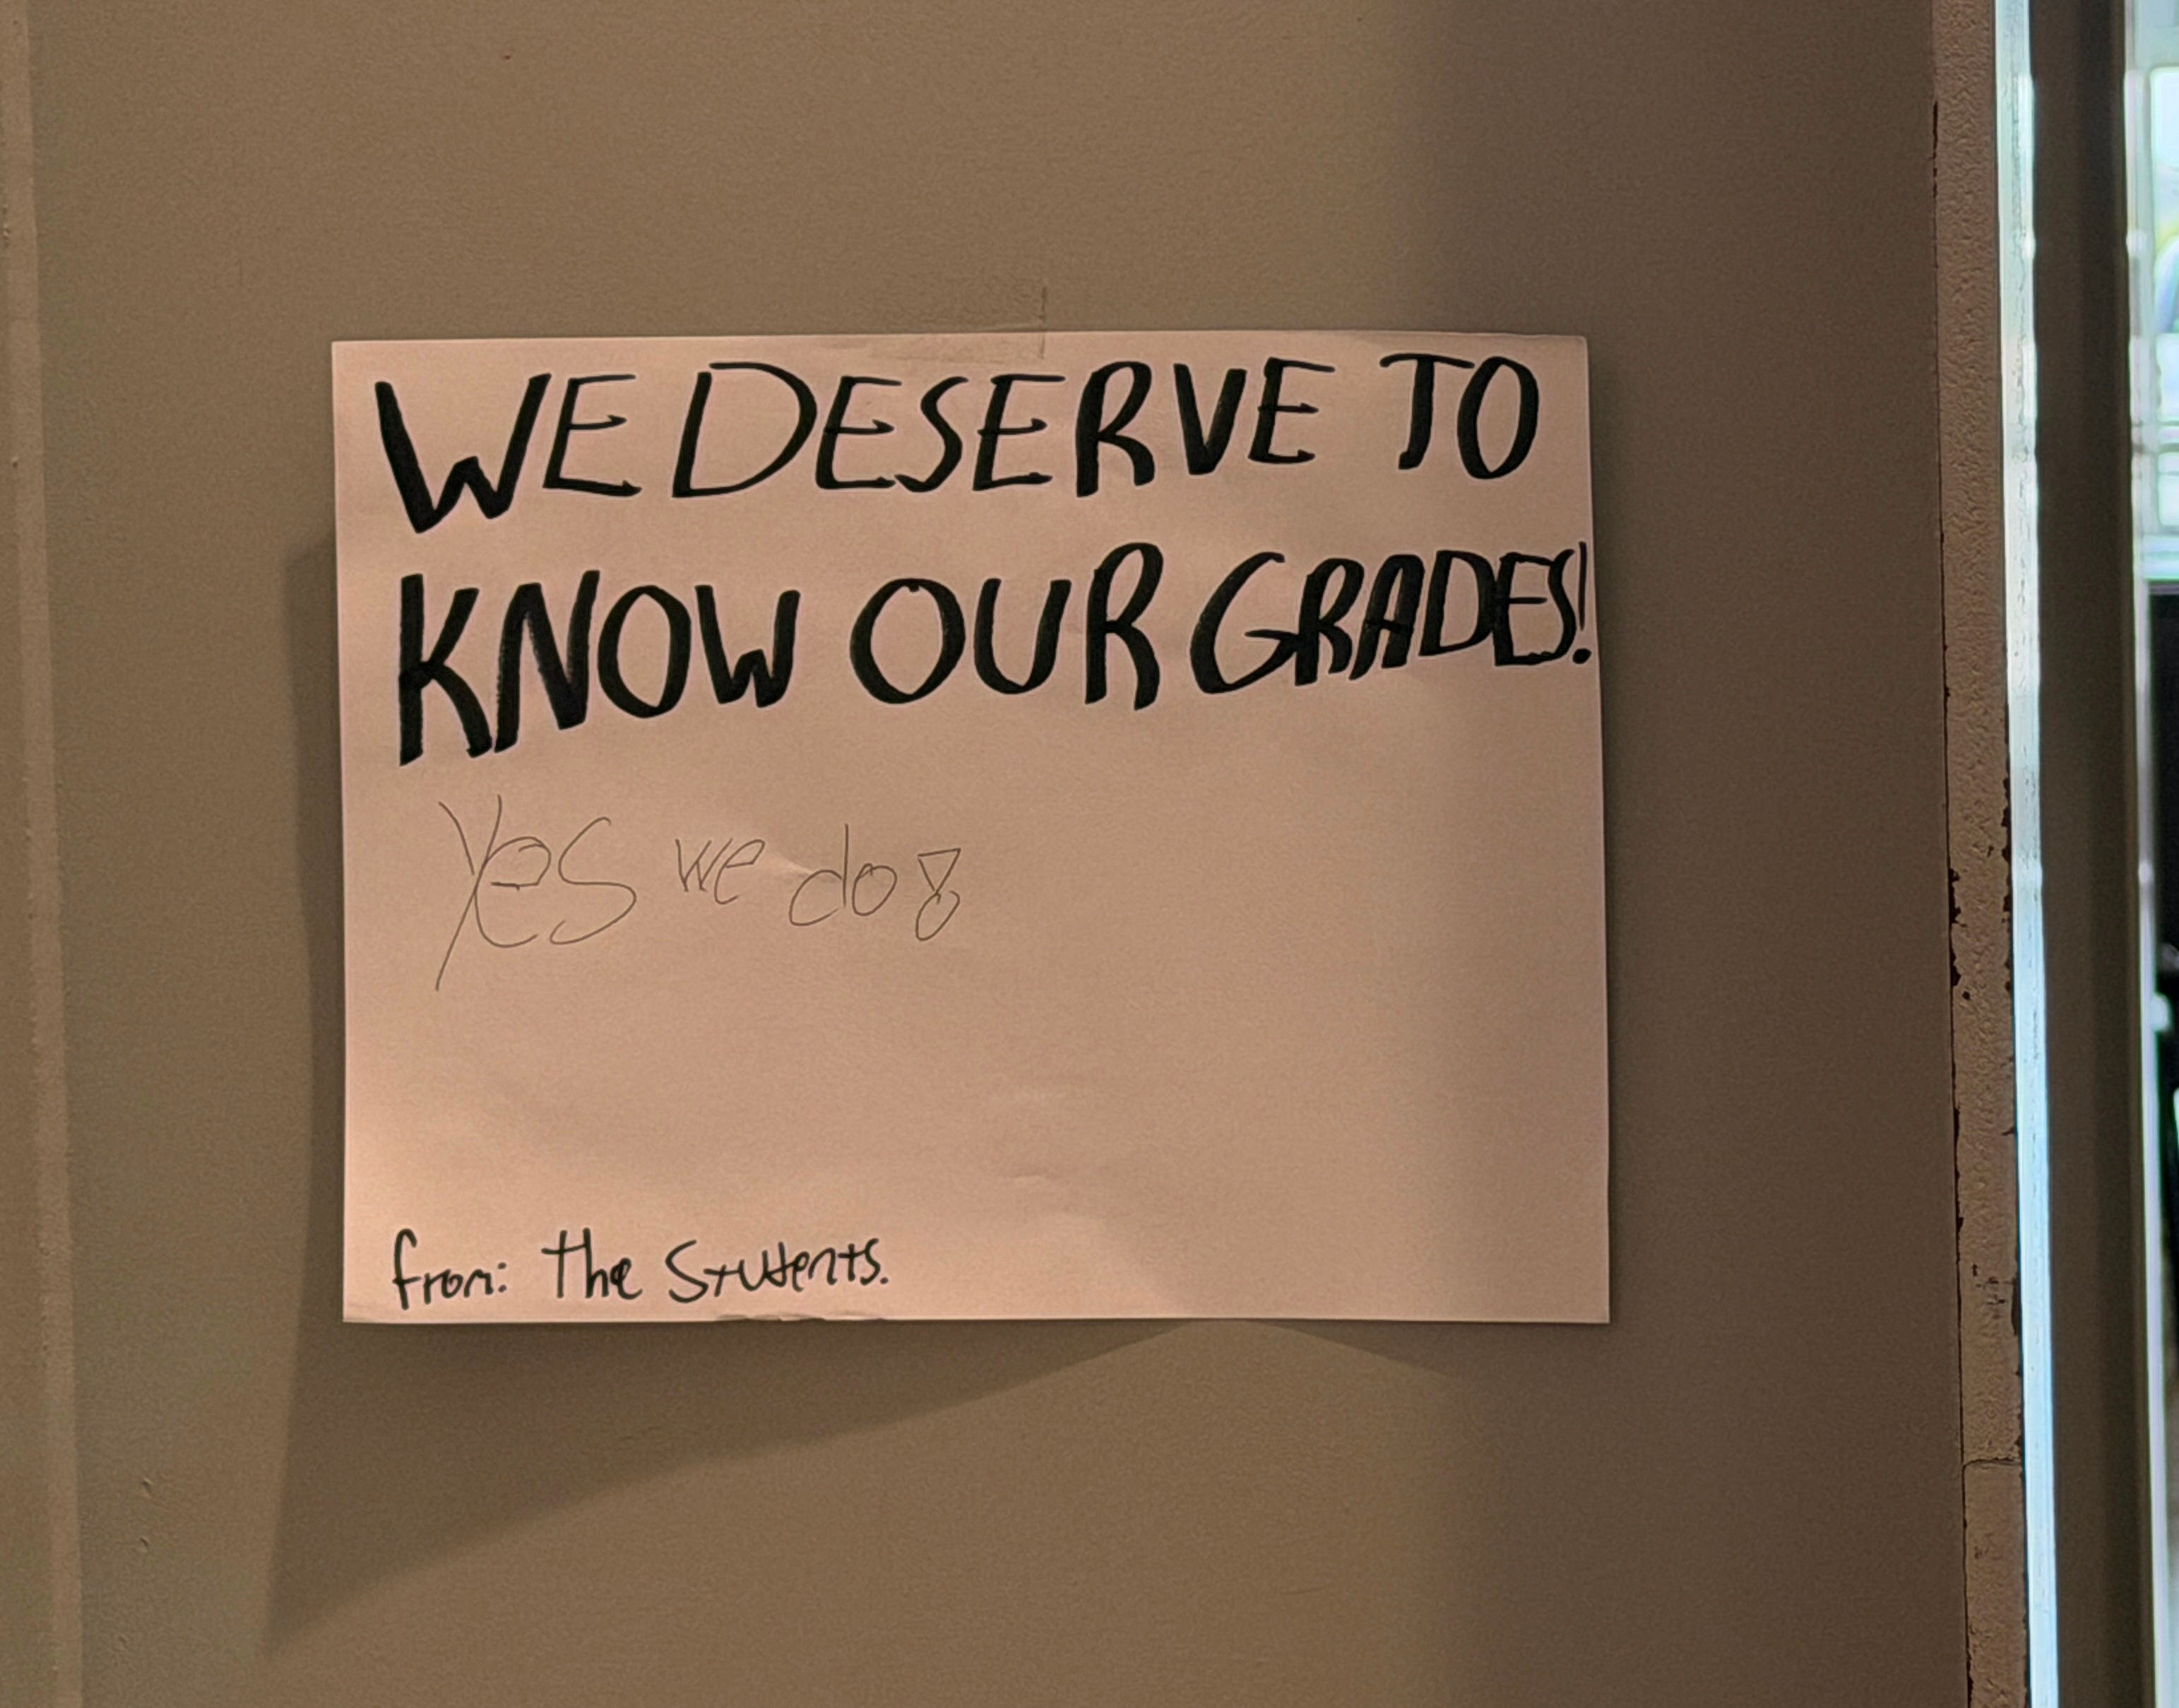 WE DESERVE TO
KNOW OUR GRADES!
Yes we do!
from: the Students.